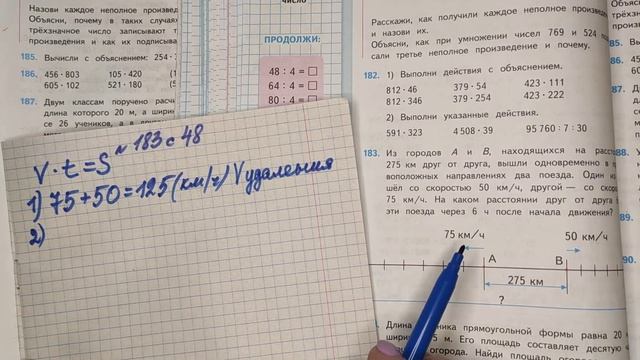 Назови каждое неполное произвед
Объясни, почему в таких случаях
трёхзначное число записывают т
произведения и как их подписыва
185. Вычисли с объяснением: 254 ·
186. 456 · 803 105 · 420
605 · 102 521 · 180
187. Двум классам поручено расчи
длина которого 20 м, а ширин
се 26 учеников, а в друго
число
ПРОДОЛЖИ:
48 : 4 =
64 : 4 =
80 : 4 =
№ 183 с 48
V · t = S
1) 75 + 50 = 125 (км/ч) V удаления
2)
Расскажи, как получили каждое неполное произвед
и назови их.
Объясни, как при умножении чисел 769 и 524 под
сали третье неполное произведение и почему.
182. 1) Выполни действия с объяснением.
812 · 46 379 · 54 423 · 111
812 · 346 379 · 254 423 · 222
2) Выполни указанные действия.
591 · 323 4 508 · 39 95 760 : 7 : 30
183. Из городов А и В, находящихся на расст
275 км друг от друга, вышли одновременно в п
воположных направлениях два поезда. Один из
шёл со скоростью 50 км/ч, другой — со скор
75 км/ч. На каком расстоянии друг от друга б
эти поезда через 6 ч после начала движения?
75 км/ч 50 км/ч
А В
275 км
?
Длина
прямоугольной формы равна 20
м. Его площадь составляет десятую ч
огорода. Найди площадь
Объясни
186. 456
605
90.